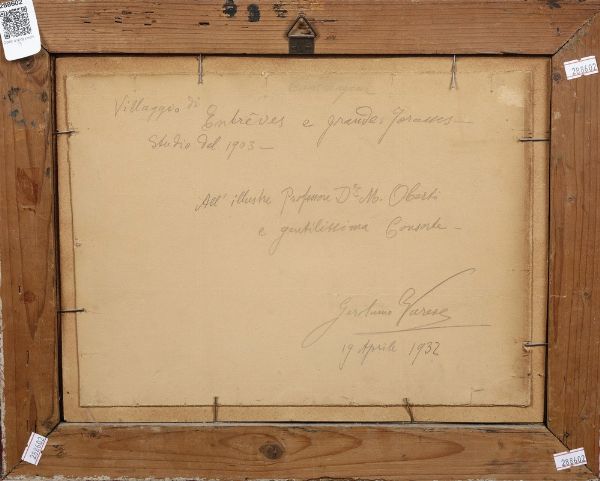 288602
288602
Villaggio di Entrèves e grandes Jorasses
Studio del 1903
All' illustre Professore Dre M. Oberti
e gentilissima Consorte
Gerolamo Varese
19 Aprile 1932
288602
288602